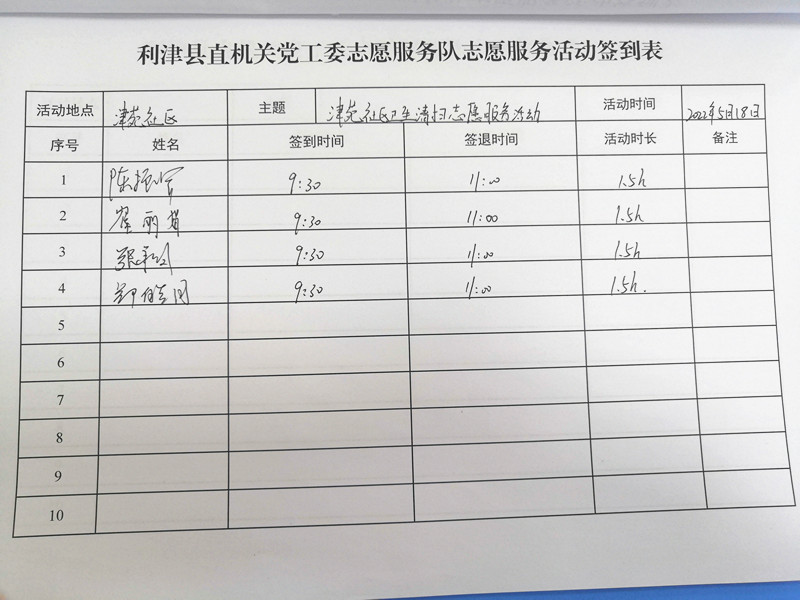 利津县直机关党工委志愿服务队志愿服务活动签到表
活动地点 津苑社区 主题 津苑社区卫生清扫志愿服务活动 活动时间 2022年5月18日
序号 姓名 签到时间 签退时间 活动时长 备注
1 陈振军 9:30 11:00 1.5h
2 崔丽 9:30 11:00 1.5h
3 9:30 11:00 1.5h
4 9:30 11:00 1.5h.
5
6
7
8
9
10